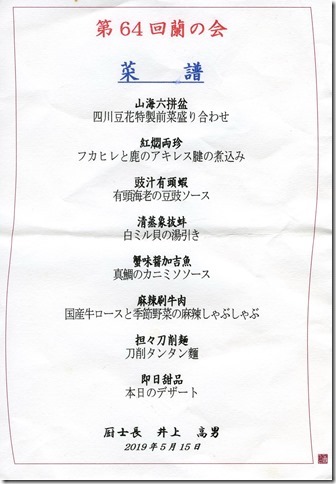 第64回蘭の会
菜 譜
山海六拼盆
四川豆花特製前菜盛り合わせ
紅燜両珍
フカヒレと鹿のアキレス腱の煮込み
豉汁有頭蝦
有頭海老の豆豉ソース
清蒸象抜蚌
白ミル貝の湯引き
蟹味醤加吉魚
真鯛のカニミソソース
麻辣刷牛肉
国産牛ロースと季節野菜の麻辣しゃぶしゃぶ
担々刀削麺
刀削タンタン麺
即日甜品
本日のデザート
厨士長 井上 高男
2019年5月15日